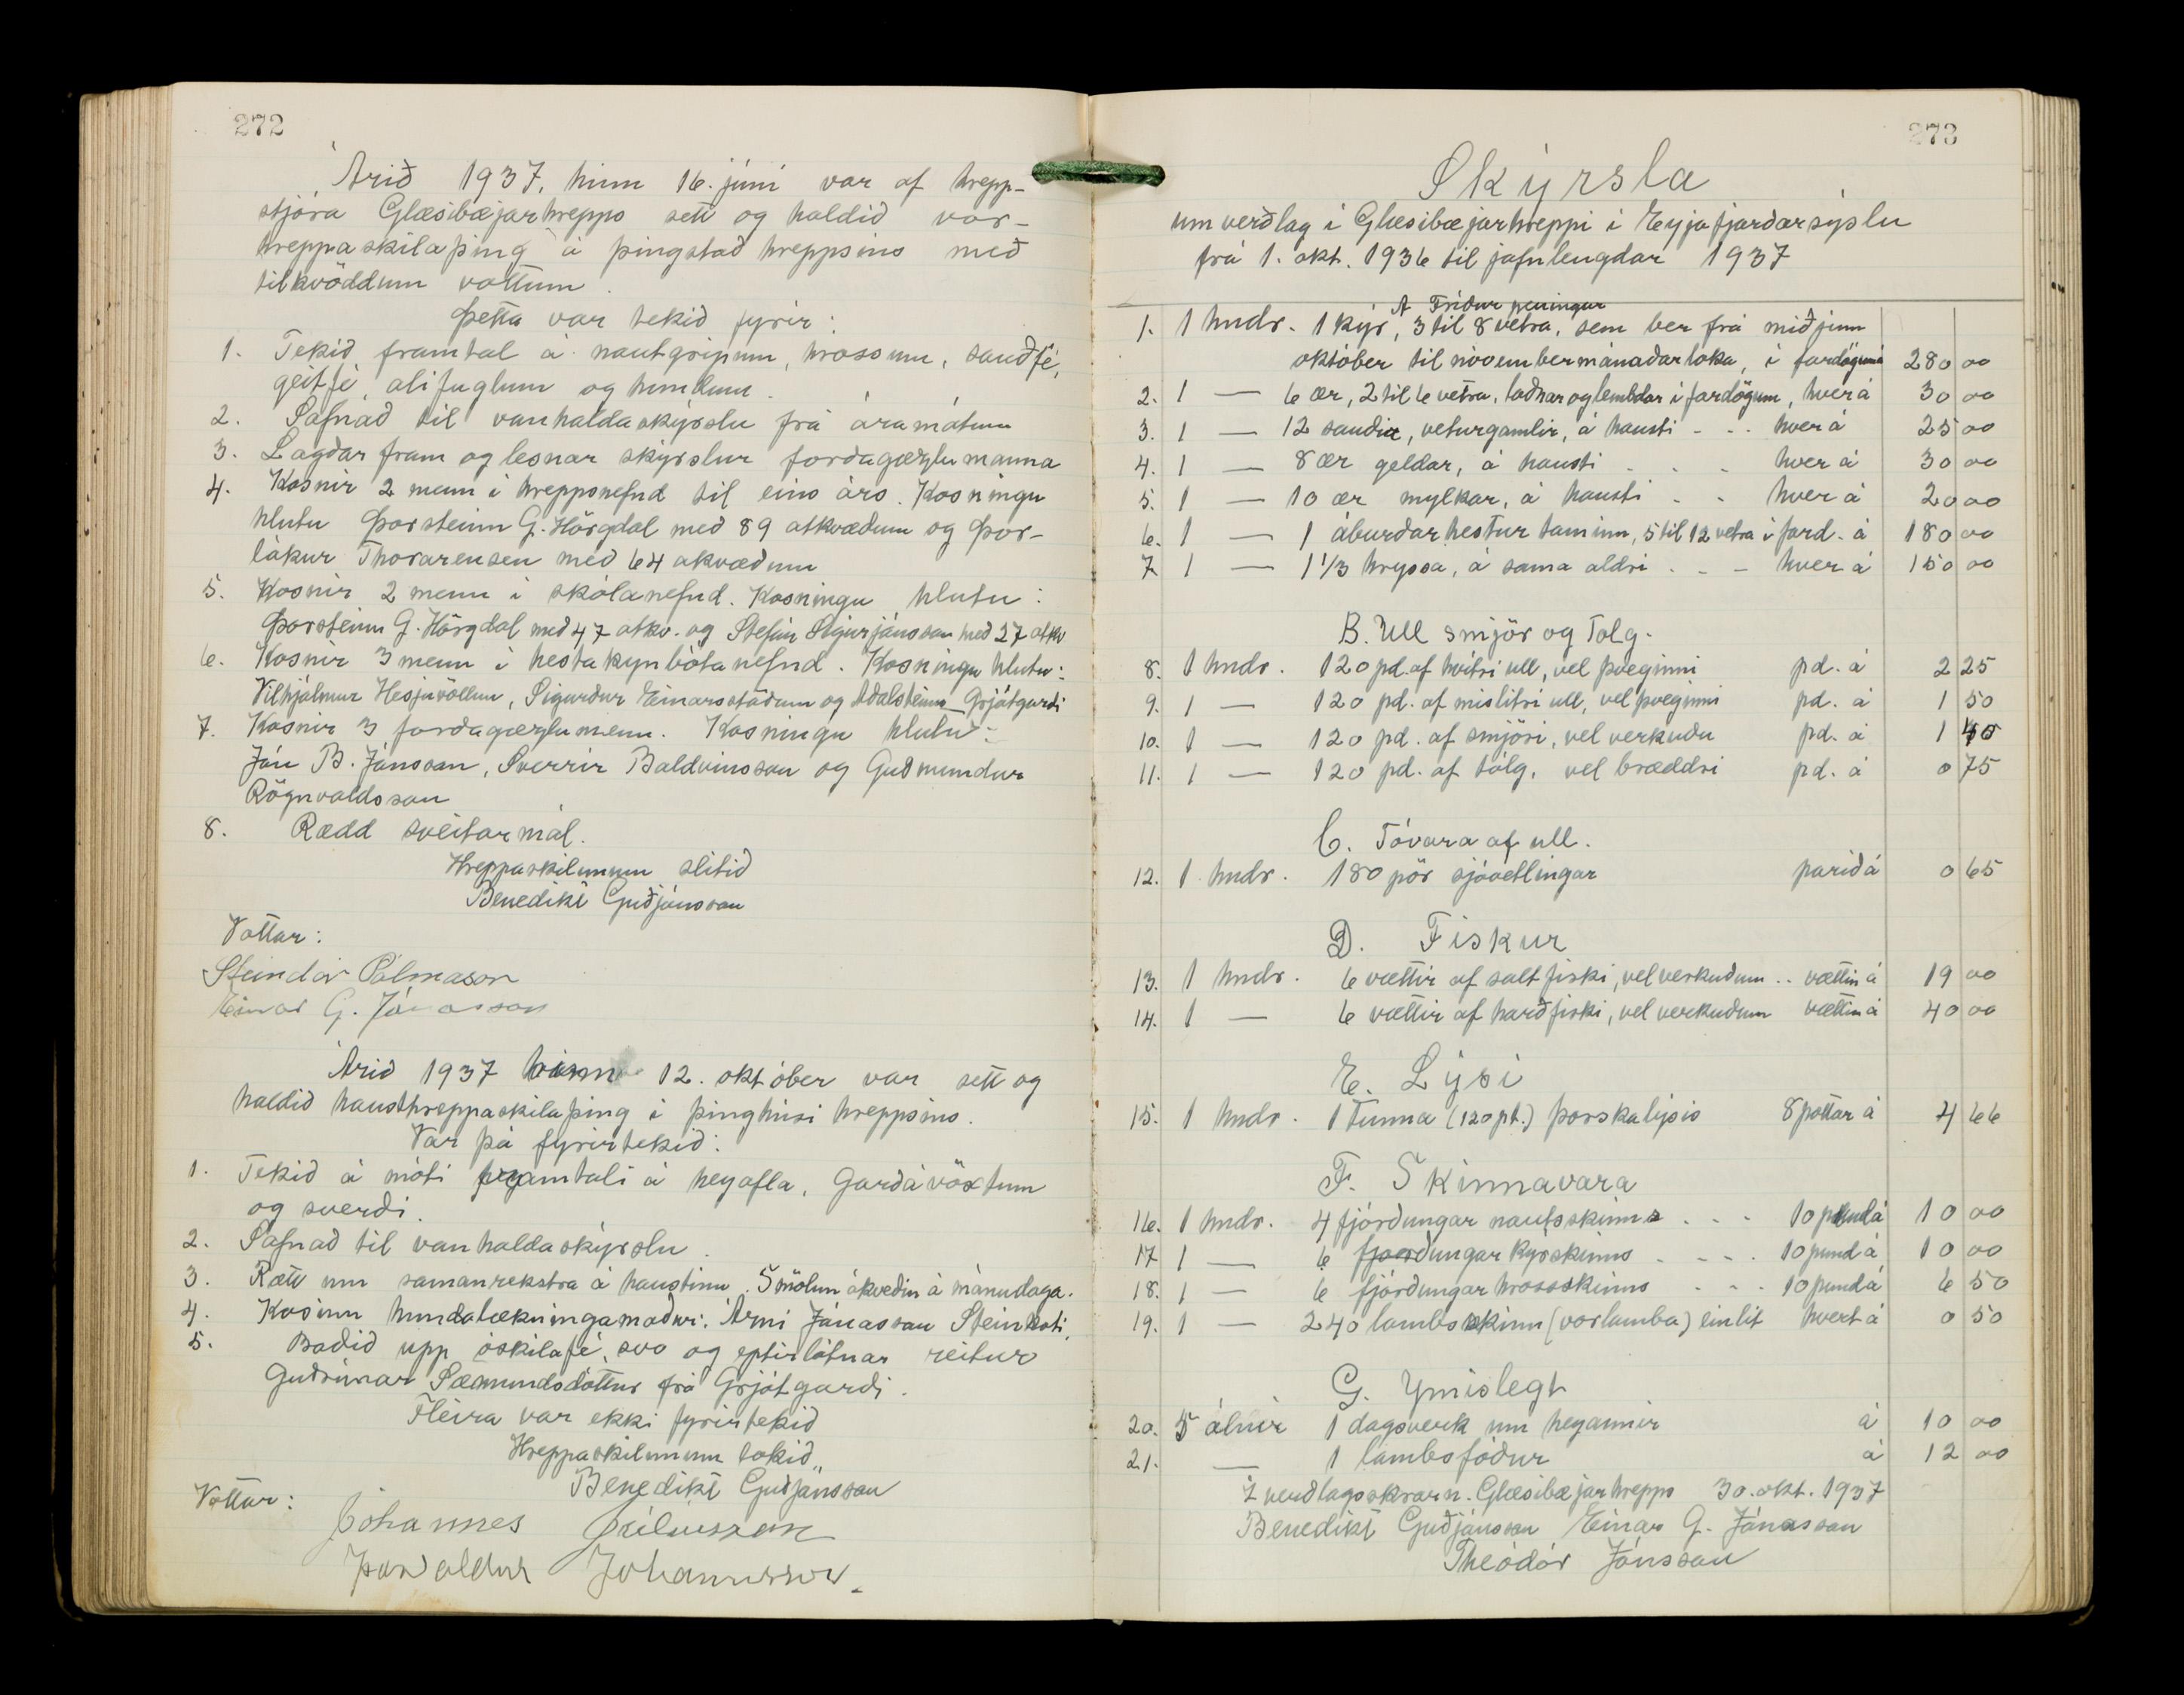 272
Árið 1937, hinn 16. júní var af hrepp-
stjóra Glæsibæjarhrepps sett og haldið vor-
hreppaskilaþing á þingstað hreppsins með
tilkvöddum vottum.
Þetta var tekið fyrir:
1. Tekið framtal á nautgripum, hrossum, sauðfé,
geitfé, alifuglum og hundum.
2. Safnað til vanhaldaskýrslu frá áramótum
3. Lagðar fram og lesnar skýrslur forðagæzlumanna
4. Kosnir 2 menn í hreppsnefnd til eins árs. Kosningu
hlutu Þorsteinn G. Hörgdal með 89 atkvæðum og Þor-
lákur Thorarensen með 64 akvæðum
5. Kosnir 2 menn í skólanefnd. Kosningu hlutu:
Þorsteinn G. Hörgdal með 47 atkv. og Stefán Sigurjónsson með 27 atkv
6. Kosnir 3 menn í hestakynbótanefnd. Kosningu hlutu:
Vilhjálmur Hesjuvöllum, Sigurður Einarsstöðum og Aðalsteinn Grjótgarði
7. Kosnir 3 forðagæzlumenn. Kosningu hlutu:
Jón B. Jónsson, Sverrir Baldvinsson og Guðmundur
Rögnvaldsson
8. Rædd sveitarmál.
Hreppaskilunum slitið
Benedikt Guðjónsson
Vottar:
Steindór Pálmason
Einar G. Jónasson
Árið 1937 hinn 12. október var sett og
haldið hausthreppaskilaþing í þinghúsi hreppsins.
Var þá fyrirtekið:
1. Tekið á móti framtali á heyafla, garðávöxtum
og sverði.
2. Safnað til vanhaldaskýrslu.
3. Rætt um samanrekstra á haustinu. Smölun ákveðin á mánudaga.
4. Kosinn hundalækningamaður: Árni Jónasson Steinkoti.
5. Boðið upp óskilafé, svo og eptirlátnar reitur
Guðrúnar Sæmundsdóttur frá Grjótgarði.
Fleira var ekki fyrirtekið
Hreppaskilunum lokið.
Benedikt Guðjónsson
Vottar:
Jóhannes Júlíusson
Þorvaldur Jóhannsson.
273
Skýrsla
um verðlag í Glæsibæjarhreppi í Eyjafjarðarsýslu
frá 1. okt. 1936 til jafnlengdar 1937
A Fríður peningur
1. 1 hndr. 1 kýr, 3 til 8 vetra, sem ber frá miðjum
október til nóvembermánaðarloka, í fardögum á 280 00
2. 1 — 6 ær, 2 til 6 vetra, loðnar og lembdar í fardögum, hver á 30 00
3. 1 — 12 sauðir, veturgamlir, á hausti - - - hver á 25 00
4. 1 — 8 ær geldar, á hausti - - - hver á 30 00
5. 1 — 10 ær mylkar, á hausti - - hver á 20 00
6. 1 — 1 áburðarhestur taminn, 5 til 12 vetra í fard. á 180 00
7 1 — 1 1/3 hryssa, á sama aldri - - - hver á 150 00
B. Ull smjör og Tolg.
8. 1 hndr. 120 pd. af hvítri ull, vel þveginni pd. á 2 25
9. 1 — 120 pd. af mislitri ull, vel þveginni pd. á 1 50
10. 1 — 120 pd. af smjöri, vel verkuðu pd. á 1 40
11. 1 — 120 pd. af tólg, vel bræddri pd. á 0 75
C. Tóvara af ull.
12. 1 hndr. 180 pör sjóvetlingar parið á 0 65
D. Fiskur
13. 1 hndr. 6 vættir af saltfiski, vel verkuðum .. vættin á 19 00
14. 1 — 6 vættir af harðfiski, vel verkuðum vættin á 40 00
E. Lýsi
15. 1 hndr. 1 tunna (120 pt.) þorskalýsis 8 pottar á 4 66
F. Skinnavara
16. 1 hndr. 4 fjórðungar nautsskinns - - - 10 pund á 10 00
17 1 — 6 fjórðungar kýrskinns - - - - 10 pund á 10 00
18. 1 — 6 fjórðungar hrossskinns - - - 10 pund á 6 50
19. 1 — 240 lambsskinn (vorlamba) einlit hvert á 0 50
G. Ýmislegt
20. 5 álnir 1 dagsverk um heyannir á 10 00
21. — 1 lambsfóður á 12 00
Í verðlagsskrárn. Glæsibæjarhrepps 30. okt. 1937
Benedikt Guðjónsson Einar G. Jónasson
Theódór Jónsson